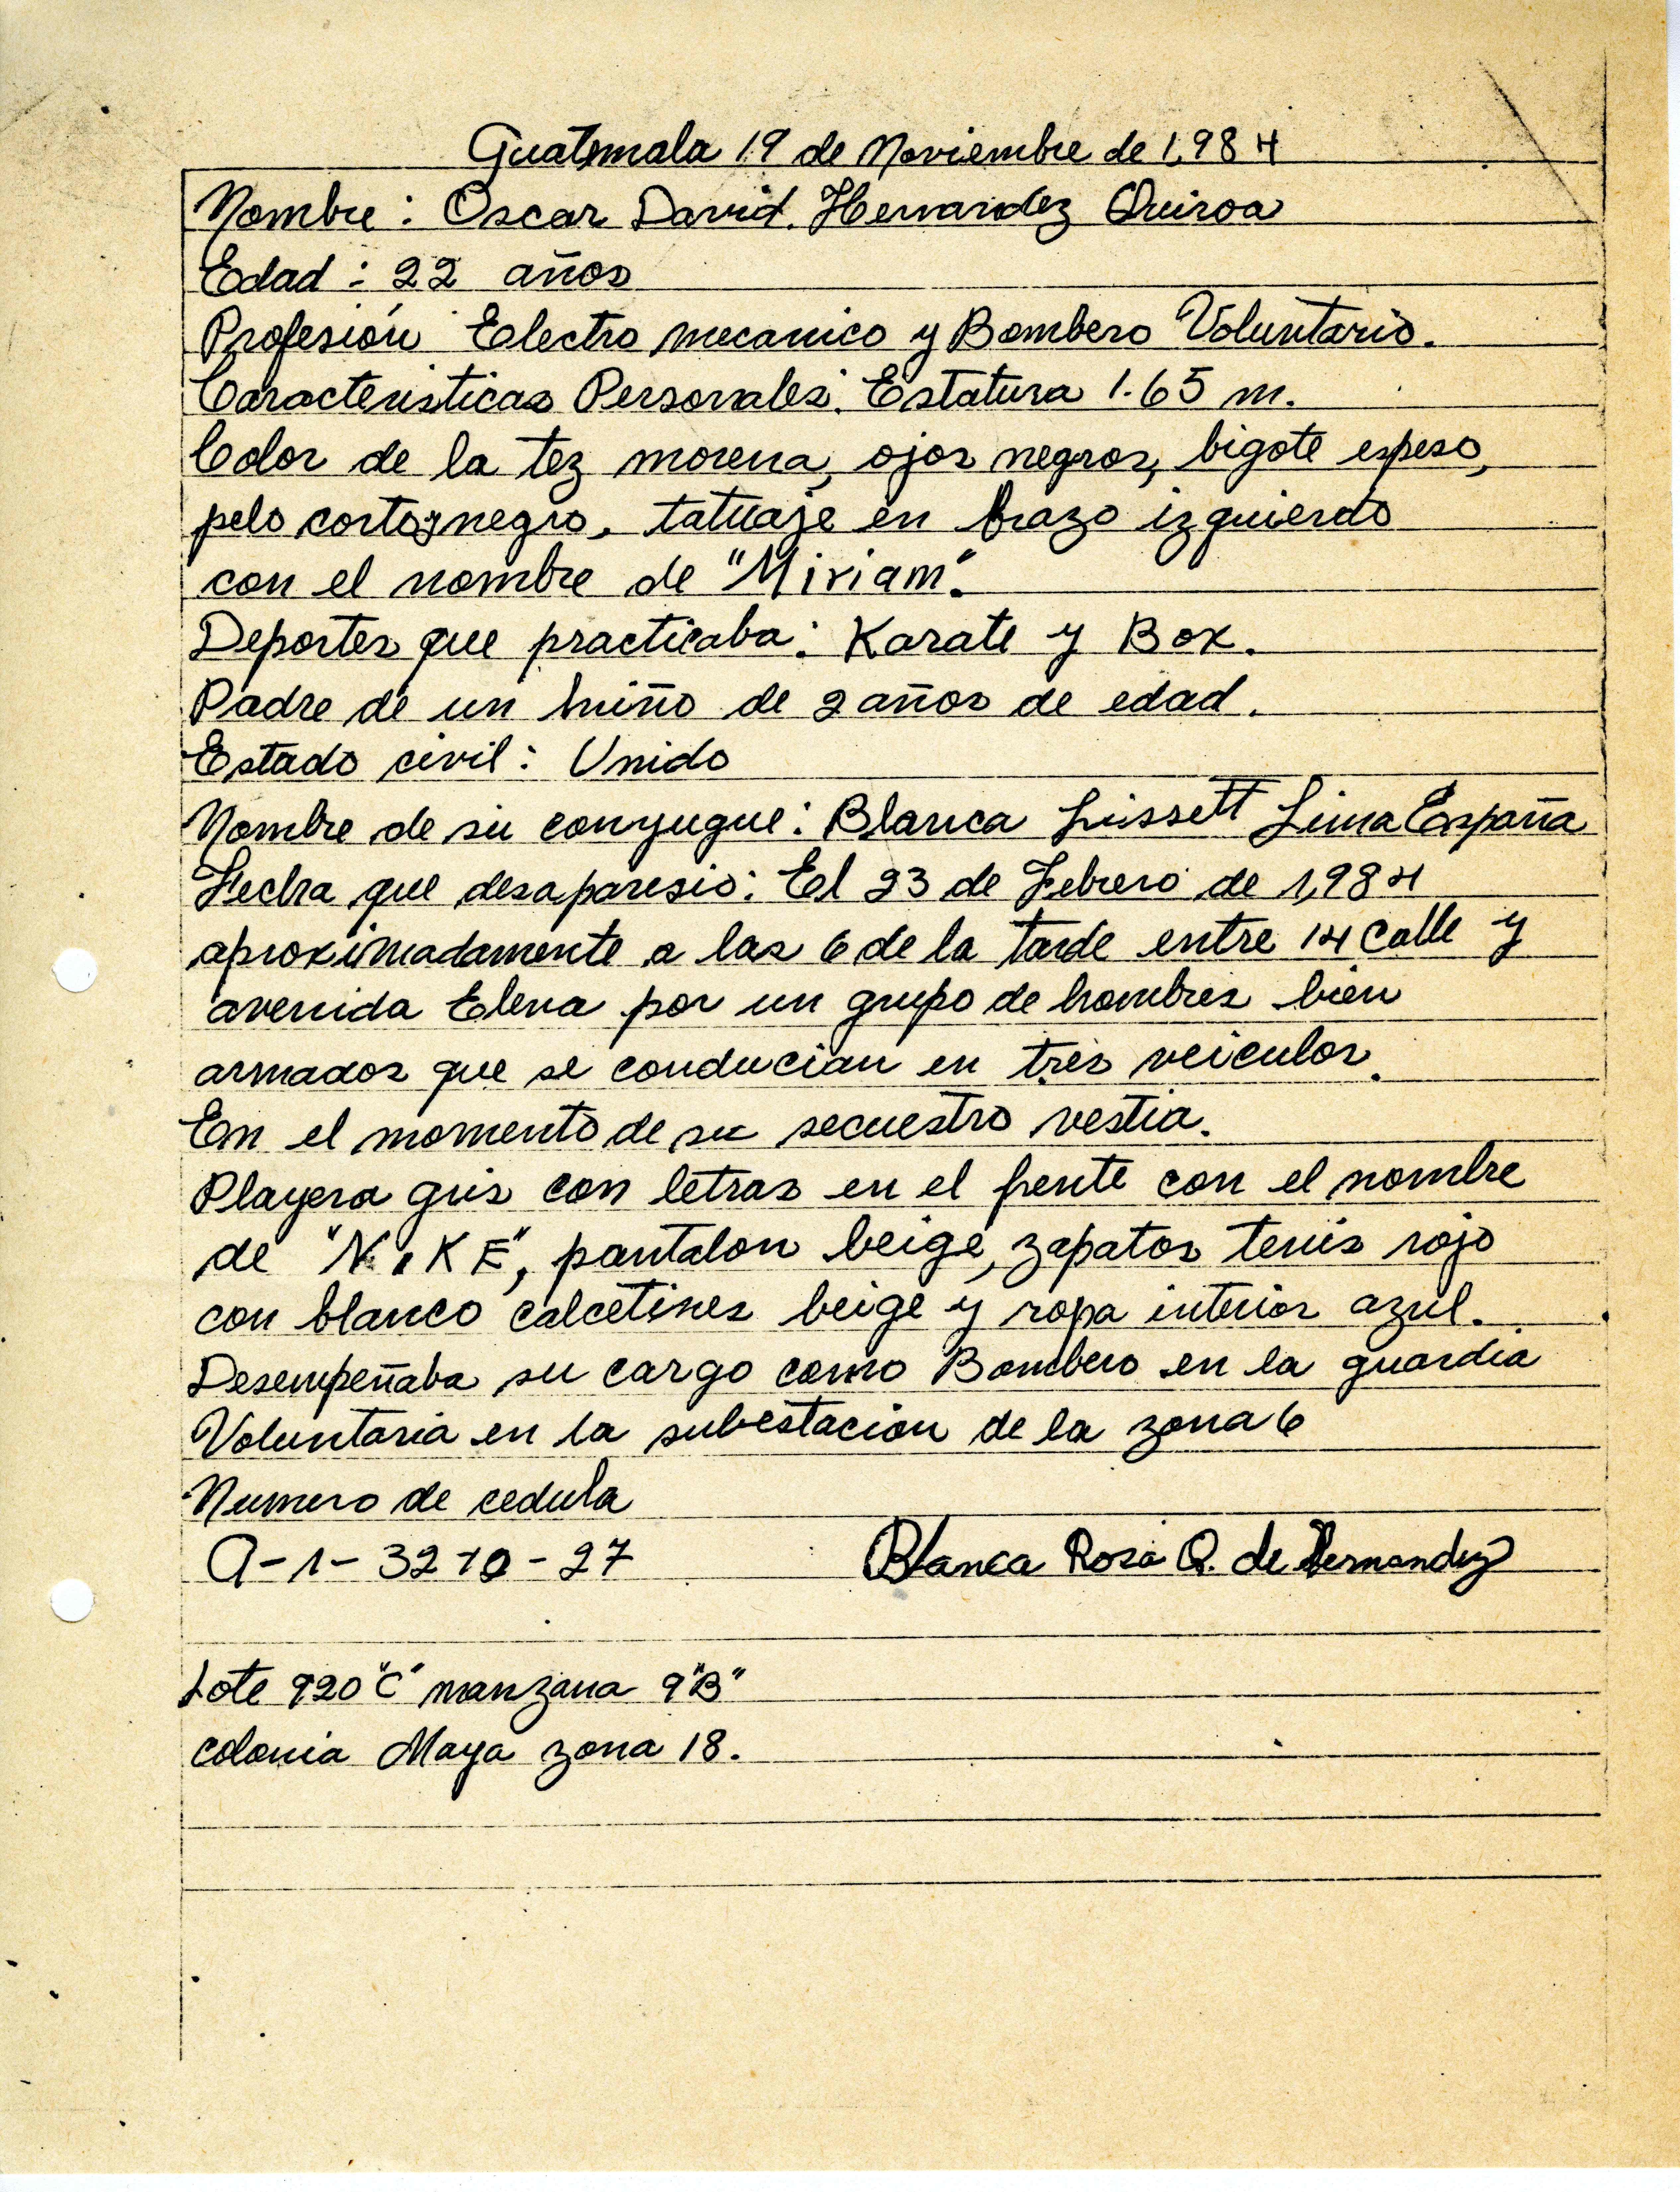 Guatemala 19 de Noviembre de 1,984
Nombre: Oscar David Hernandez Quiroa
Edad: 22 años
Profesión Electro mecanico y Bombero Voluntario.
Caracteristicas Personales: Estatura 1.65 m.
Color de la tez morena, ojos negros, bigote espeso,
pelo corto y negro, tatuaje en brazo izquierdo
con el nombre de "Miriam".
Deportes que practicaba: Karate y Box.
Padre de un niño de 2 años de edad.
Estado civil: Unido
Nombre de su conyugue: Blanca Lissett Lima España
Fecha que desaparesio: El 23 de Febrero de 1,984
aproximadamente a las 6 de la tarde entre 14 calle y
avenida Elena por un grupo de hombres bien
armados que se conducian en tres veiculos.
En el momento de su secuestro vestia.
Playera gris con letras en el frente con el nombre
de "NIKE", pantalon beige, zapatos tenis rojo
con blanco calcetines beige y ropa interior azul.
Desempeñaba su cargo como Bombero en la guardia
Voluntaria en la subestacion de la zona 6
Numero de cedula
A-1- - 27 Blanca Rosa Q. de Hernandez
Lote 920 "C" manzana 9 "B"
colonia Maya zona 18.